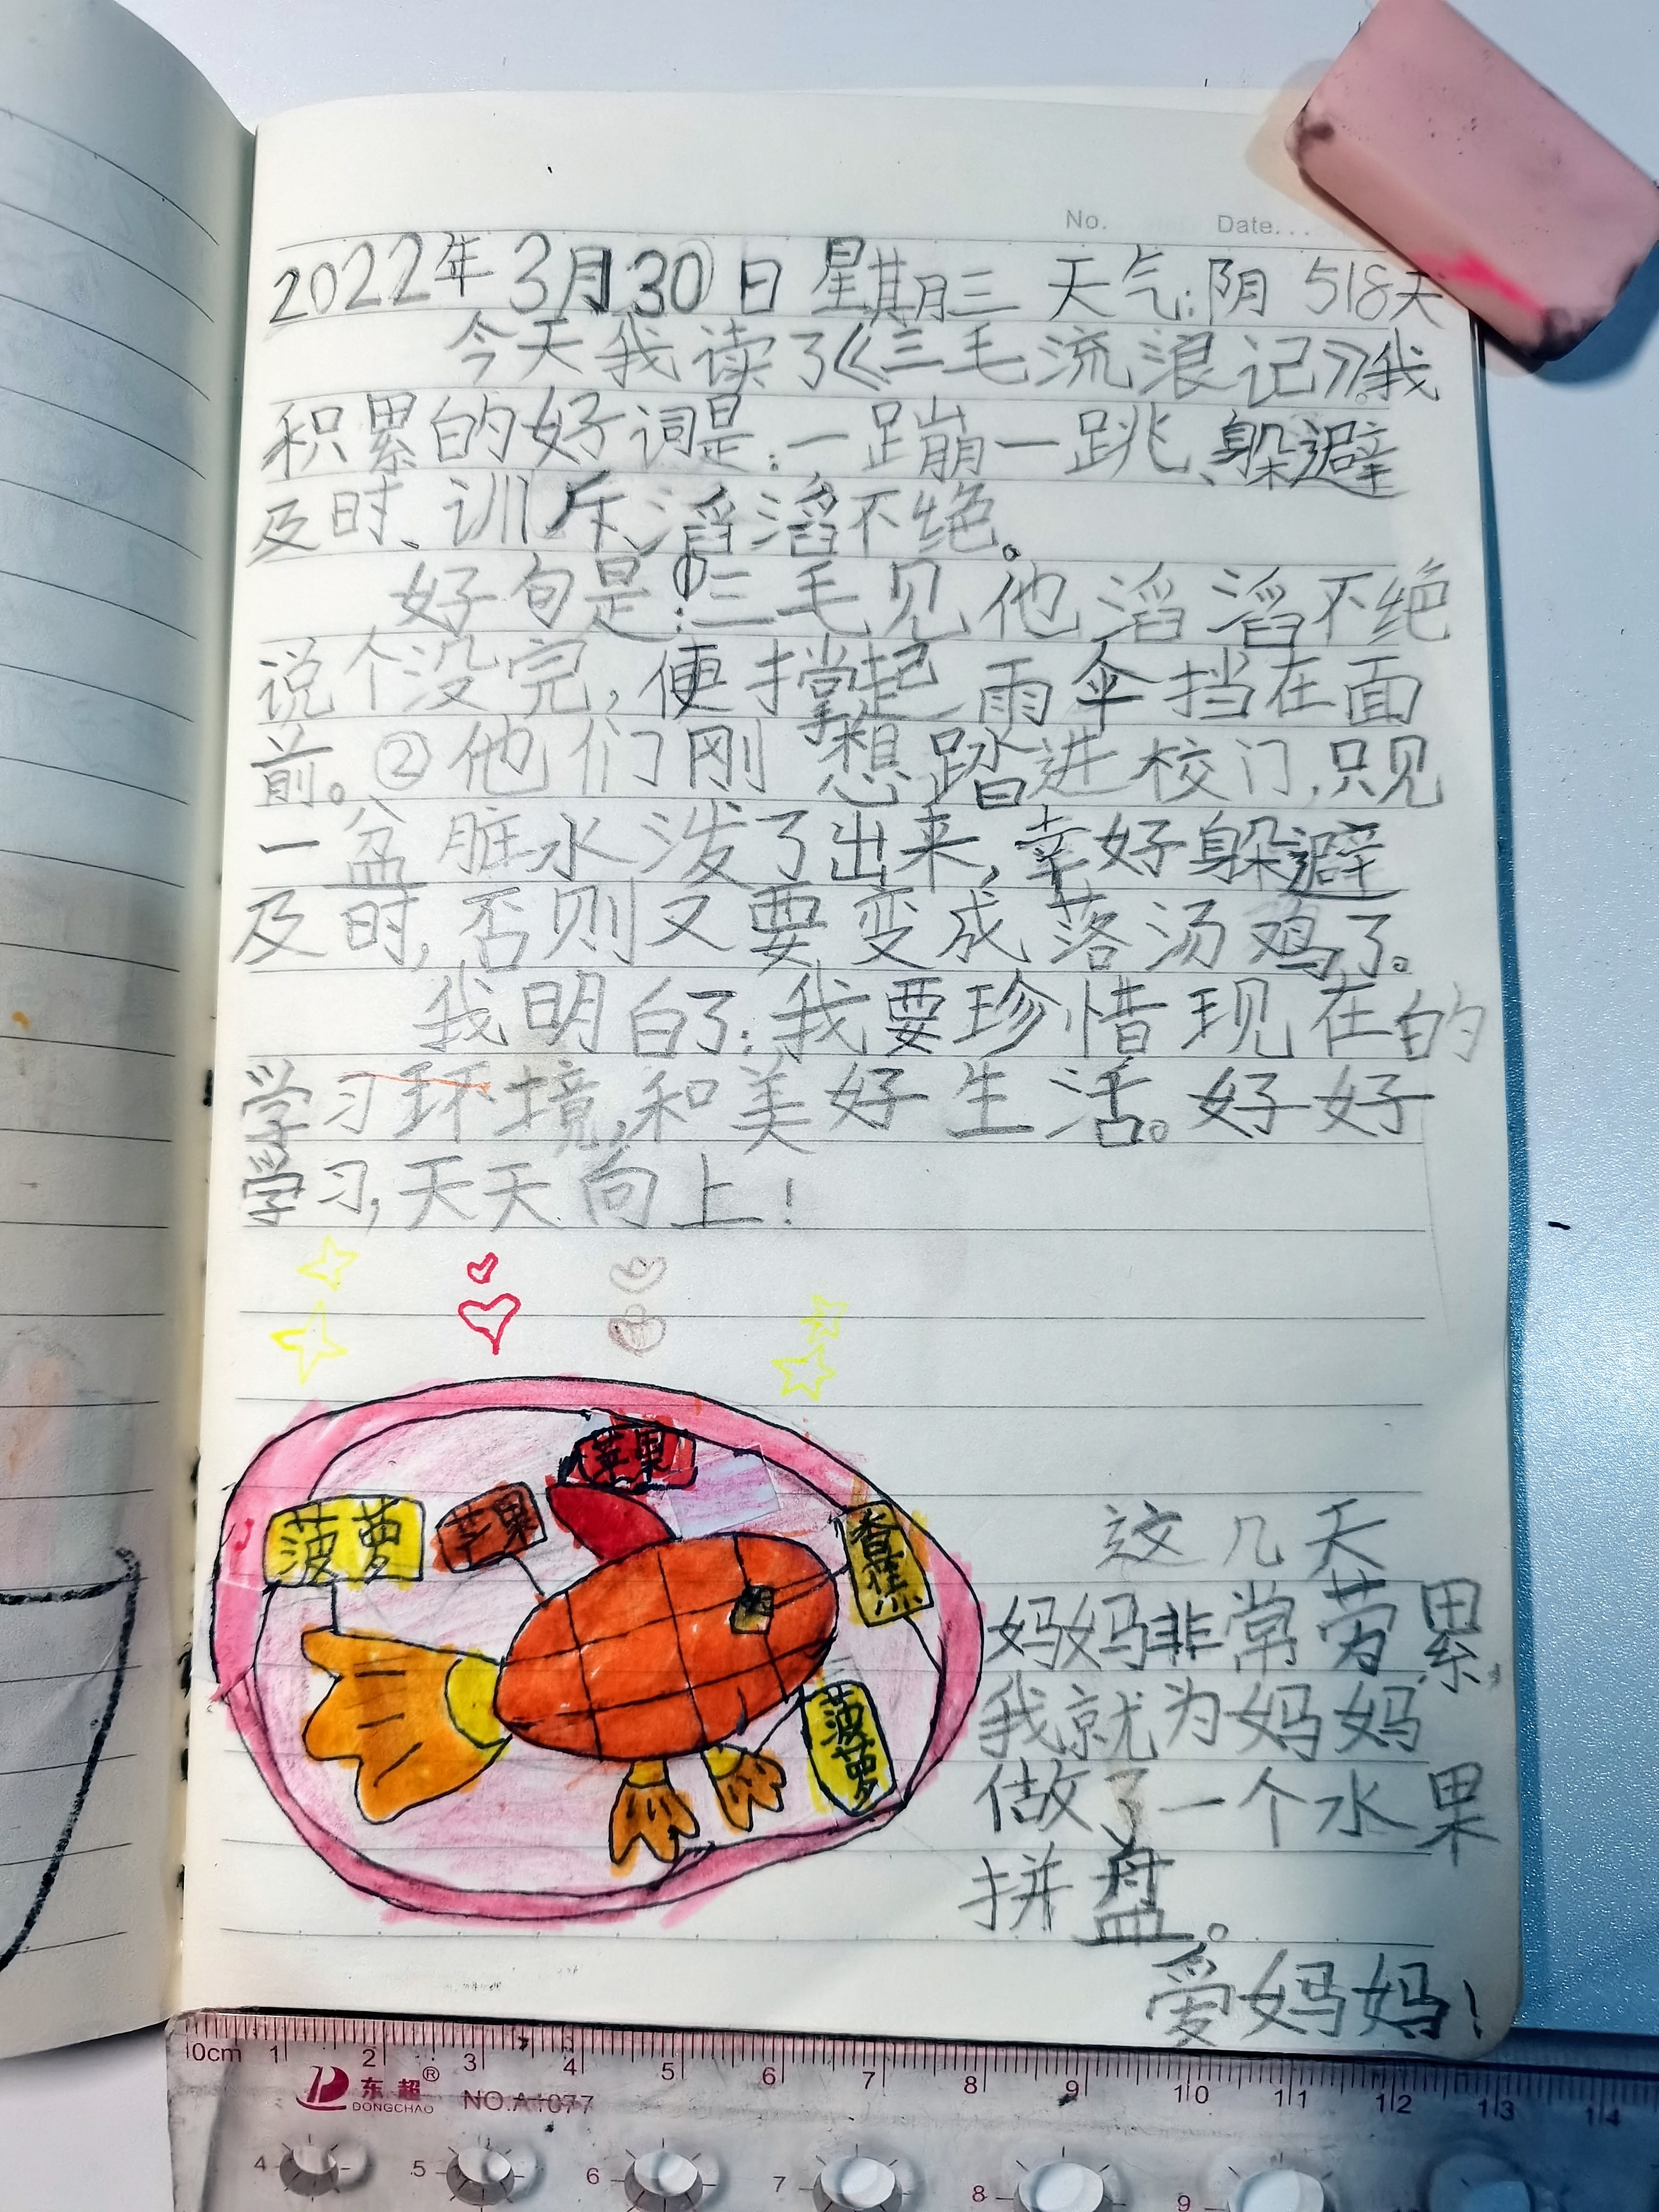 No. Date...
2022年3月30日 星期三 天气:阴 518天
今天我读了《三毛流浪记》。我
积累的好词是:一蹦一跳、躲避
及时、训斥、滔滔不绝。
好句是:①三毛见他滔滔不绝
说个没完,便撑起雨伞挡在面
前。②他们刚想踏进校门,只见
一盆脏水泼了出来,幸好躲避
及时,否则又要变成落汤鸡了。
我明白了:我要珍惜现在的
学习环境,和美好生活。好好
学习,天天向上!
苹果
菠萝
芒果
香蕉
菠萝
这几天
妈妈非常劳累,
我就为妈妈
做了一个水果
拼盘。
爱妈妈!
0cm 1 2 3 4 5 6 7 8 9 10 11 12 13 14
东超® DONGCHAO NO.A1077
4 5 6 7 8 9